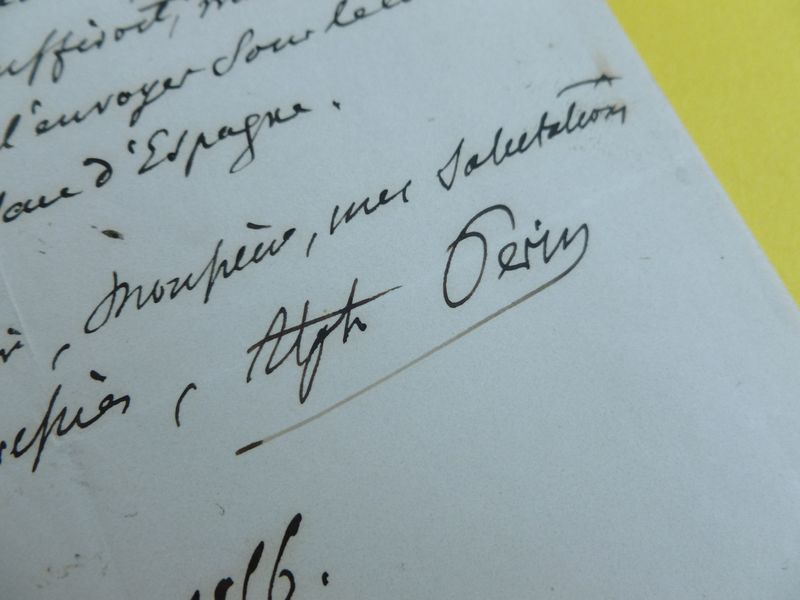 suffiroit,
l'envoyer sous le
d'Espagne.
, Monsieur, mes salutations
, Alph Perin
1856.